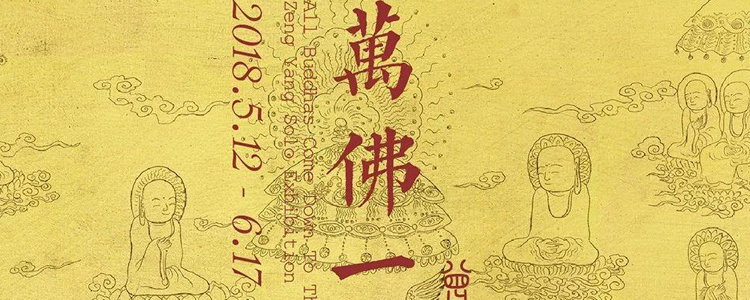 萬佛一
All Buddhas Come Down To Th
Zeng Yang Solo Exhibition
2018.5.12 - 6.17